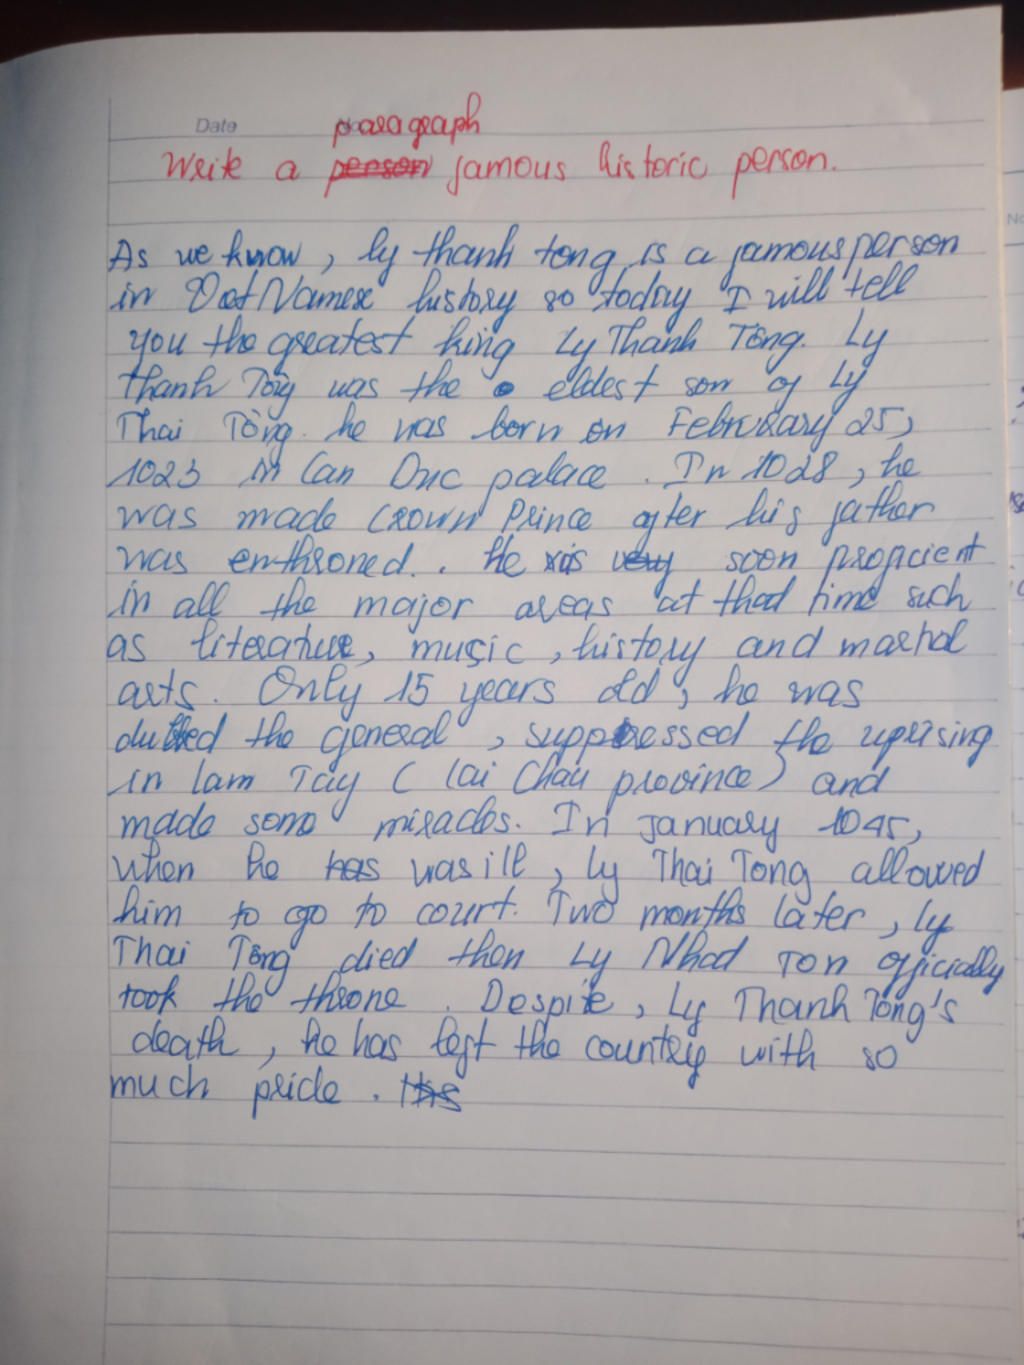 Date
paragraph
Write a person famous historic person.
As we know, ly thanh tong is a famous person
in VietNamese history so today I will tell
you the greatest king Ly Thanh Tông. Ly
Thanh Tông was the eldest son of Ly
Thai Tông. he was born on February 25,
1023 in Can Duc palace. In 1028, he
was made Crown Prince after his father
was enthroned.. He was very soon proficient
in all the major areas at that time such
as literature, music, history and martial
arts. Only 15 years old, he was
dubbed the general, suppressed the uprising
in lam Tây (lai Chau province) and
made some miracles. In January 1045,
when he has was ill, ly Thai Tong allowed
him to go to court. Two months later, ly
Thai Tông died then Ly Nhat Ton officially
took the throne. Despite, Ly Thanh Tông's
death, he has left the country with so
much pride. His